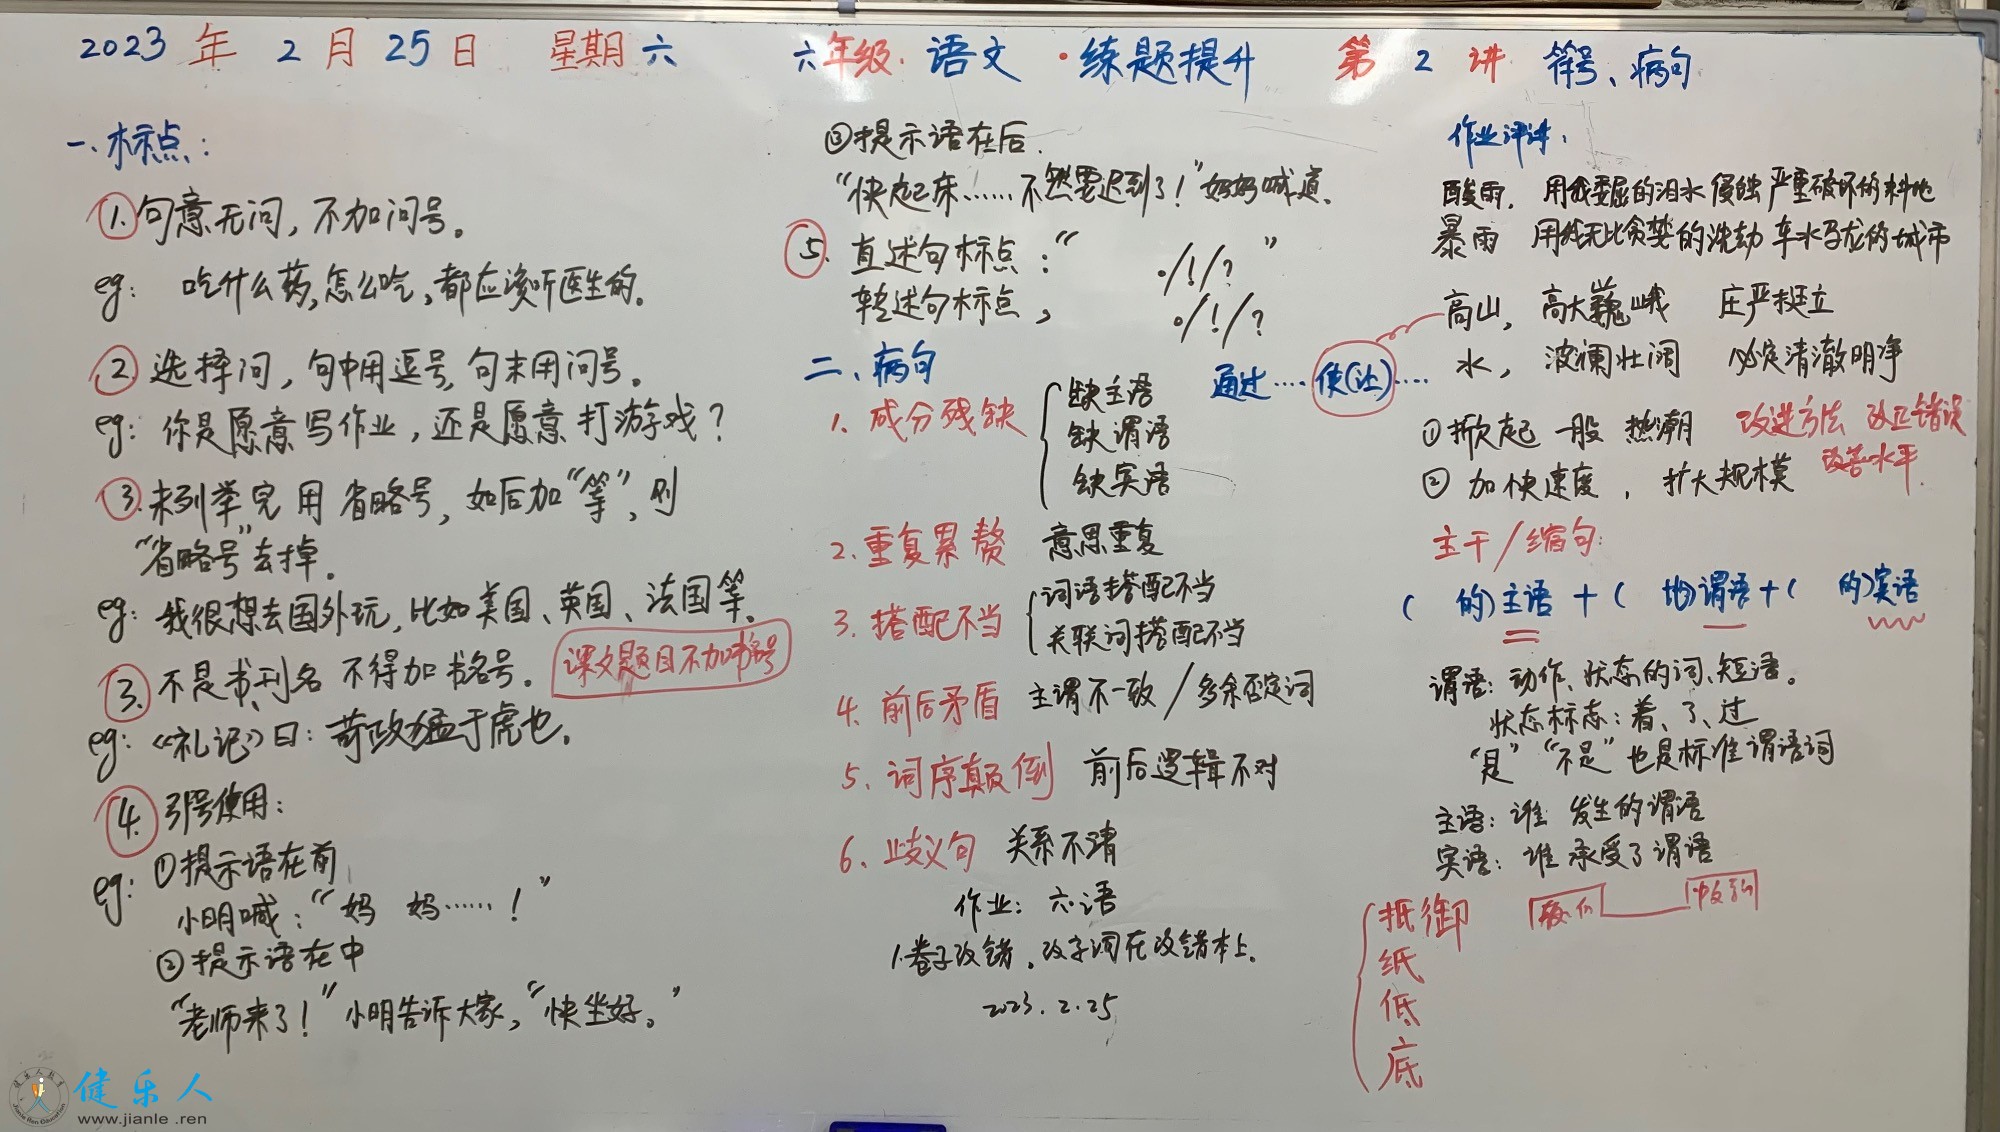 2023年2月25日 星期六 六年级·语文·练题提升 第2讲 符号、病句
一、标点：
1. 句意无问，不加问号。
eg：吃什么药，怎么吃，都应该听医生的。
2 选择问，句中用逗号，句末用问号。
eg：你是愿意写作业，还是愿意打游戏？
3. 未列举完用省略号，如后加“等”，则
“省略号”去掉。
eg：我很想去国外玩，比如美国、英国、法国等。
3. 不是书、刊名不得加书名号。 课文题目不加书名号
eg：《礼记》曰：苛政猛于虎也。
4. 引号使用：
①提示语在前
eg：小明喊：“妈妈……！”
②提示语在中
“老师来了！”小明告诉大家，“快坐好。”
③提示语在后.
“快起床……不然要迟到了！”妈妈喊道.
5. 直述句标点：“ 。/！/？”
转述句标点， 。/！/？
二、病句 通过……使(让)……
1. 成分残缺 缺主语
缺谓语
缺宾语
2. 重复累赘 意思重复
3. 搭配不当 词语搭配不当
关联词搭配不当
4. 前后矛盾 主谓不一致/多余否定词
5. 词序颠倒 前后逻辑不对
6. 歧义句 关系不清
作业：六·语
1.卷子改错。改字词在改错本上.
2023.2.25
作业评讲：
酸雨. 用我委屈的泪水侵蚀严重破坏的
暴雨 用我无比贪婪的洗劫车水马龙的城市
高山， 高大巍峨 庄严挺立
水， 波澜壮阔 必定清澈明净
①掀起一股热潮 改进方法 改正错误
②加快速度，扩大规模 改善水平.
主干/缩句：
( 的)主语+( 地)谓语+( 的)宾语
谓语：动作、状态的词、短语。
状态标志：着、了、过
“是”“不是”也是标准谓语词
主语：谁 发生的谓语
宾语：谁 承受了谓语
抵御
纸
低
底
健乐人
www.jianle.ren